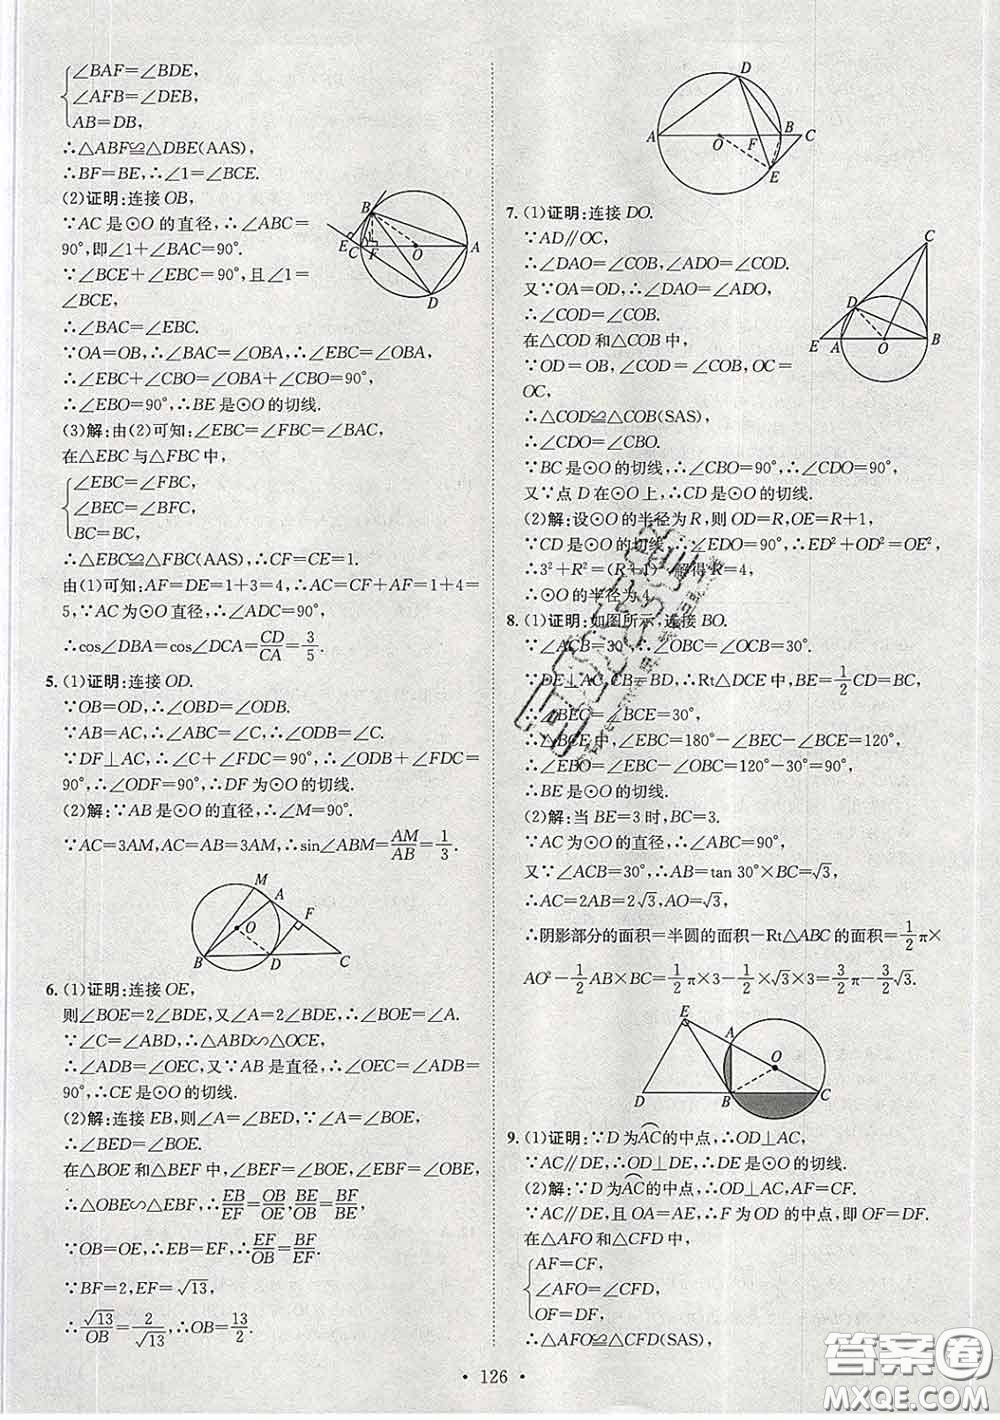 ∠BAF=∠BDE,
∠AFB=∠DEB,
AB=DB,
∴△ABF≌△DBE(AAS)
∴BF=BE,∴∠1=∠BCE.
(2)证明:连接OB,
∵AC是⊙O的直径,∴∠ABC=
90°,即∠1+∠BAC=90°.
∵∠BCE+∠EBC=90°,且∠1=
∠BCE,
∴∠BAC=∠EBC.
∵OA=OB,∴∠BAC=∠OBA,∴∠EBC=∠OBA,
∴∠EBC+∠CBO=∠OBA+∠CBO=90°,
∴∠EBO=90°,∴BE是⊙O的切线.
(3)解:由(2)可知:∠EBC=∠FBC=∠BAC,
在△EBC与△FBC中,
∠EBC=∠FBC,
∠BEC=∠BFC,
BC=BC,
∴△EBC≌△FBC(AAS),∴CF=CE=1.
由(1)可知:AF=DE=1+3=4,∴AC=CF+AF=1+4=
5,∵AC为⊙O直径,∴∠ADC=90°,
∴cos∠DBA=cos∠DCA=CD/CA=3/5.
5. (1)证明:连接OD.
∵OB=OD,∴∠OBD=∠ODB.
∵AB=AC,∴∠ABC=∠C,∴∠ODB=∠C.
∵DF⊥AC,∴∠C+∠FDC=90°,∴∠ODB+∠FDC=
90°,∴∠ODF=90°,∴DF为⊙O的切线.
(2)解:∵AB是⊙O的直径,∴∠M=90°.
∵AC=3AM,AC=AB=3AM,∴sin∠ABM=AM/AB=1/3.
M A F O B D C
6. (1)证明:连接OE,
则∠BOE=2∠BDE,又∠A=2∠BDE,∴∠BOE=∠A.
∵∠C=∠ABD,∴△ABD∽△OCE,
∴∠ADB=∠OEC,又∵AB是直径,∴∠OEC=∠ADB=
90°,∴CE是⊙O的切线.
(2)解:连接EB,则∠A=∠BED,∵∠A=∠BOE,
∴∠BED=∠BOE.
在△BOE和△BEF中,∠BEF=∠BOE,∠EBF=∠OBE,
∴△OBE∽△EBF,∴EB/EF=OB/OE,BE/OB=BF/BE,
∵OB=OE,∴EB=EF,∴EF/OB=BF/EF.
∵BF=2,EF=√13,
∴√13/OB=2/√13,∴OB=13/2.
D A O F B C E
7. (1)证明:连接DO.
∵AD∥OC,
∴∠DAO=∠COB,∠ADO=∠COD.
又∵OA=OD,∴∠DAO=∠ADO,
∴∠COD=∠COB.
在△COD和△COB中,
∵OD=OB,∠COD=∠COB,OC=
OC,
∴△COD≌△COB(SAS),
∴∠CDO=∠CBO.
∵BC是⊙O的切线,∴∠CBO=90°,∴∠CDO=90°,
又∵点D在⊙O上,∴CD是⊙O的切线.
(2)解:设⊙O的半径为R,则OD=R,OE=R+1,
∵CD是⊙O的切线,∴∠EDO=90°,∴ED²+OD²=OE²,
∴3²+R²=(R+1)²,解得R=4,
∴⊙O的半径为4.
8. (1)证明:如图所示,连接BO.
∵∠ACB=30°,∴∠OBC=∠OCB=30°.
∵DE⊥AC,CB=BD,∴Rt△DCE中,BE=1/2CD=BC,
∴∠BEC=∠BCE=30°,
∴△BCE中,∠EBC=180°-∠BEC-∠BCE=120°,
∴∠EBO=∠EBC-∠OBC=120°-30°=90°,
∴BE是⊙O的切线.
(2)解:当BE=3时,BC=3.
∵AC为⊙O的直径,∴∠ABC=90°,
又∵∠ACB=30°,∴AB=tan 30°×BC=√3,
∴AC=2AB=2√3,AO=√3,
∴阴影部分的面积=半圆的面积-Rt△ABC的面积=1/2π×
AO²-1/2AB×BC=1/2π×3-1/2×√3×3=3/2π-3/2√3.
E A O D B C
9. (1)证明:∵D为AC的中点,∴OD⊥AC,
∵AC∥DE,∴OD⊥DE,∴DE是⊙O的切线.
(2)解:∵D为AC的中点,∴OD⊥AC,AF=CF.
∵AC∥DE,且OA=AE,∴F为OD的中点,即OF=DF.
在△AFO和△CFD中,
AF=CF,
∠AFO=∠CFD,
OF=DF,
∴△AFO≌△CFD(SAS),
• 126 •
答案圈
MXQE.COM